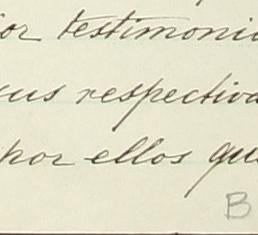 or testimonio
sus respectiva
por ellos que
B